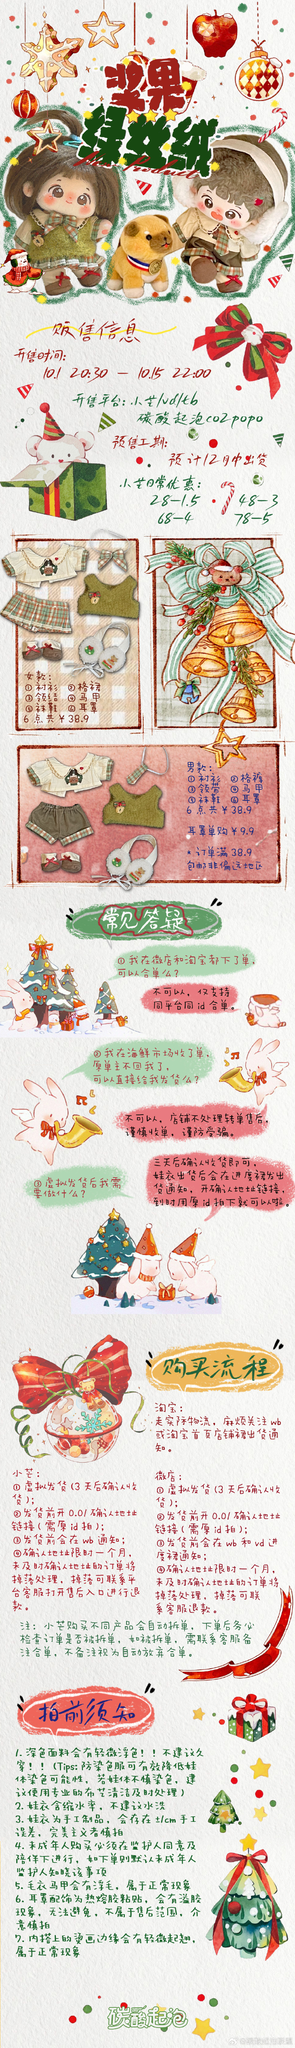 浆果
绿丝绒
贩售信息
开售时间:
10.1 20:30 — 10.15 22:00
开售平台:小芒/vd/tb
碳酸起泡co2popo
预售工期:
预计12月中出货
小芒日常优惠:
28-1.5 48-3
68-4 78-5
女款:
①衬衫 ②格裙
③领结 ④马甲
⑤袜鞋 ⑥耳罩
6点共¥38.9
男款:
①衬衫 ②格裤
③领带 ④马甲
⑤袜鞋 ⑥耳罩
6点共¥38.9
耳罩单购¥9.9
*订单满38.9
包邮非偏远地区
常见答疑
①我在微店和淘宝都下了单,
可以合单么?
不可以,仅支持
同平台同id合单。
②我在海鲜市场收了单,
原单主不回我了,
可以直接给我发货么?
不可以,店铺不处理转单售后,
谨慎收单,谨防受骗。
③虚拟发货后我需
要做什么?
三天后确认收货即可,
娃衣出货后会在进度裙发
货通知,开确认地址链接,
到时用原id拍下就可以啦。
购买流程
淘宝:
走实际物流,麻烦关注wb
或淘宝首页店铺裙出货通
知。
小芒:
①虚拟发货(3天后确认收
货);
②发货前开0.01确认地址
链接(需原id拍);
③发货前会在wb通知;
④确认地址限时一个月,
未及时确认地址的订单将
掉落处理,掉落可联系平
台客服打开售后入口进行退
款。
微店:
①虚拟发货(3天后确认收
货);
②发货前开0.01确认地址
链接(需原id拍);
③发货前会在wb和vd进
度裙通知;
④确认地址限时一个月,
未及时确认地址的订单将
掉落处理,掉落可联
系客服退款。
注:小芒购买不同产品会自动拆单,下单后务必
检查订单是否被拆单,如被拆单,需联系客服备
注合单,不备注视为自动放弃合单。
拍前须知
1.深色面料会有轻微浮色!!不建议久
穿!!(Tips:防染色服可有效降低娃
体染色可能性,若娃体不慎染色,建
议使用专业的布艺清洁及时处理)
2.娃衣含缩水率,不建议水洗
3.娃衣为手工制品,会存在±1cm手工
误差,完美主义者慎拍
4.未成年人购买必须在监护人同意及
陪伴下进行,如下单则默认未成年人
监护人知晓该事项
5.毛衣马甲会有浮毛,属于正常现象
6.耳罩配饰为热熔胶粘贴,会有溢胶
现象,无法避免,不属于售后范围,介
意慎拍
7.内搭上的烫画边缘会有轻微起翘,
属于正常现象
碳酸起泡